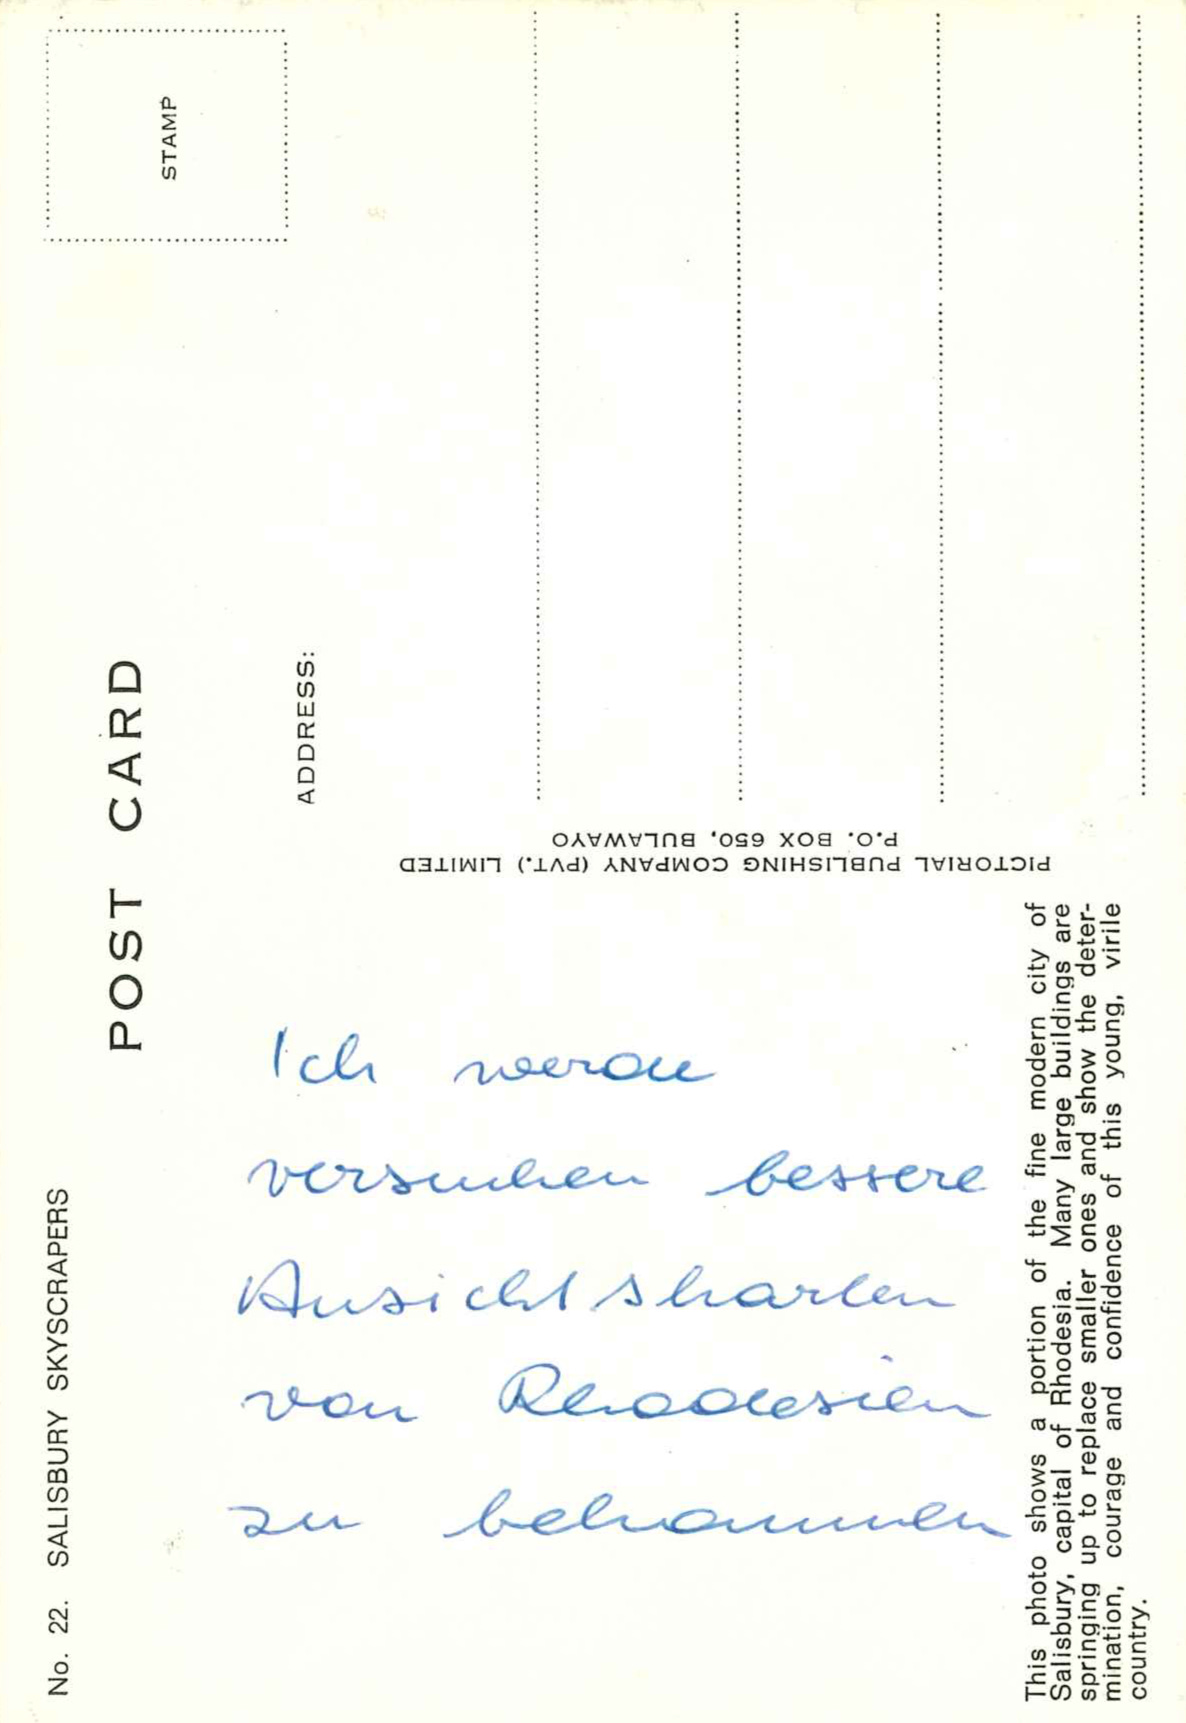 No. 22. SALISBURY SKYSCRAPERS
POST CARD
STAMP
ADDRESS:
PICTORIAL PUBLISHING COMPANY (PVT.) LIMITED
P.O. BOX 650, BULAWAYO
Ich werde
versuchen bessere
Ansichtskarten
von Rhodesien
zu bekommen
This photo shows a portion of the fine modern city of
Salisbury, capital of Rhodesia. Many large buildings are
springing up to replace smaller ones and show the deter-
mination, courage and confidence of this young, virile
country.